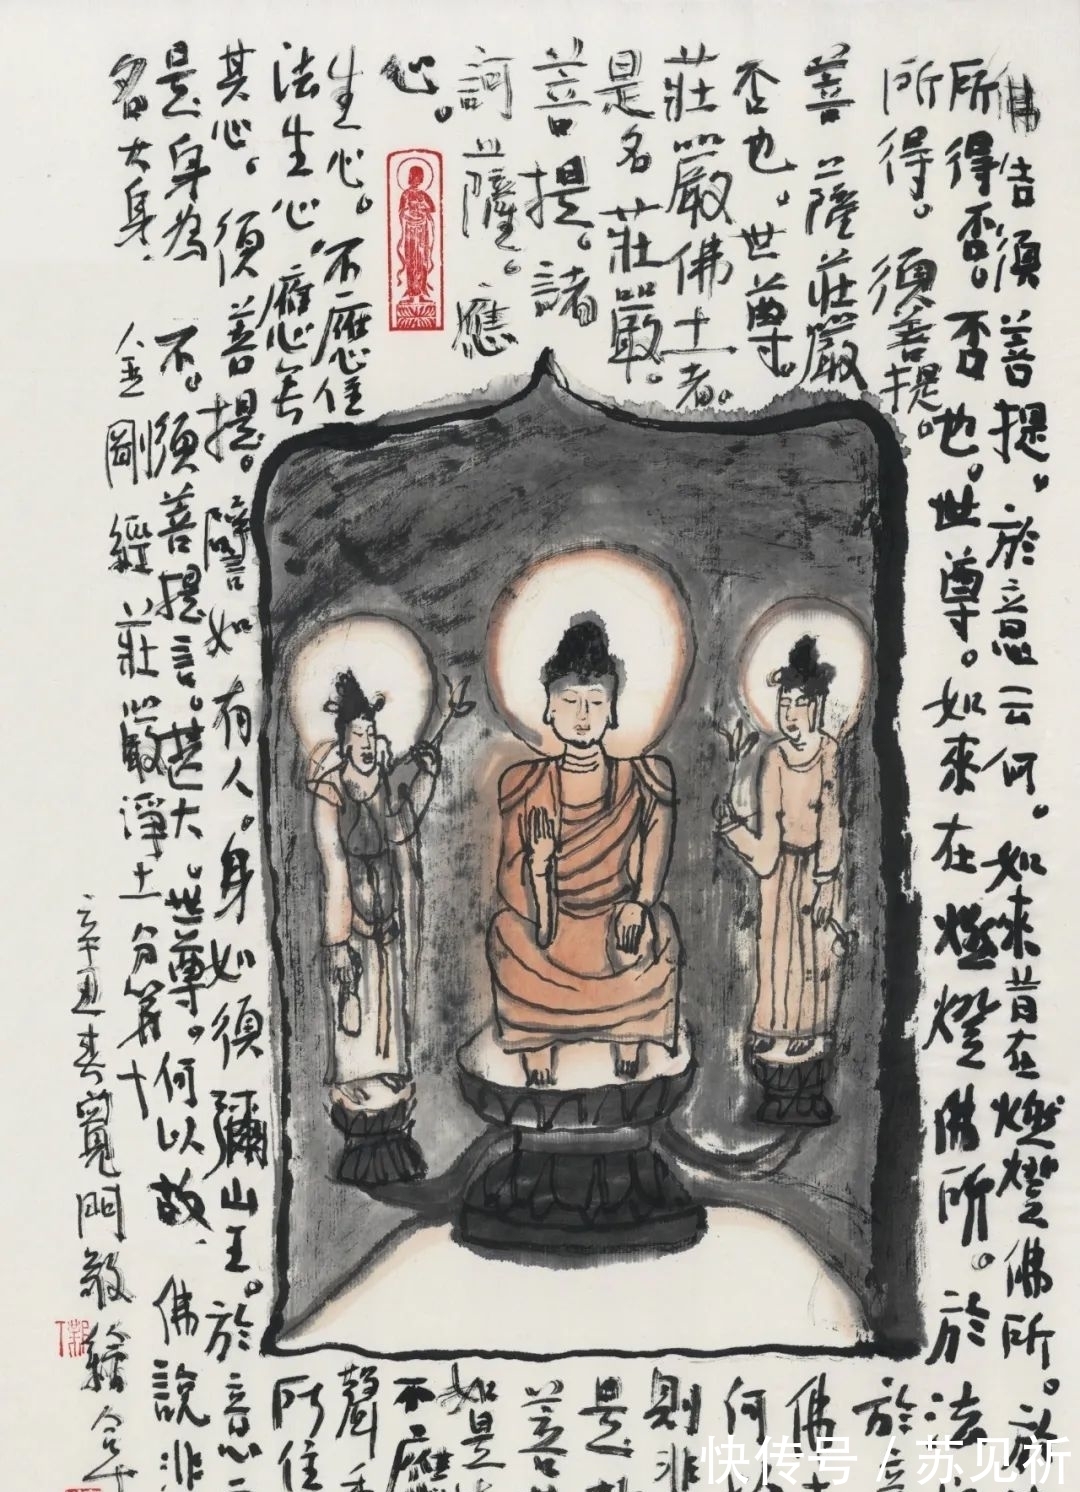 佛告須菩提。於意云何。如來昔在燃燈佛所。於
所得否。否也。世尊。如來在燃燈佛所。於法
所得。須菩提。於意
菩薩莊嚴佛
否也。世尊。何
莊嚴佛土者。則非
是名莊嚴。是
菩提。諸菩
訶薩。應如是
心。不應
生心。不應住聲
法生心。應無所住
其心。須菩提。譬如有人。身如須彌山王。於意云
是身為不。須菩提言。甚大。世尊。何以故。佛說非
名大身。
金剛經莊嚴淨土分第十
辛丑春 敬繪
快传号 / 苏见祈